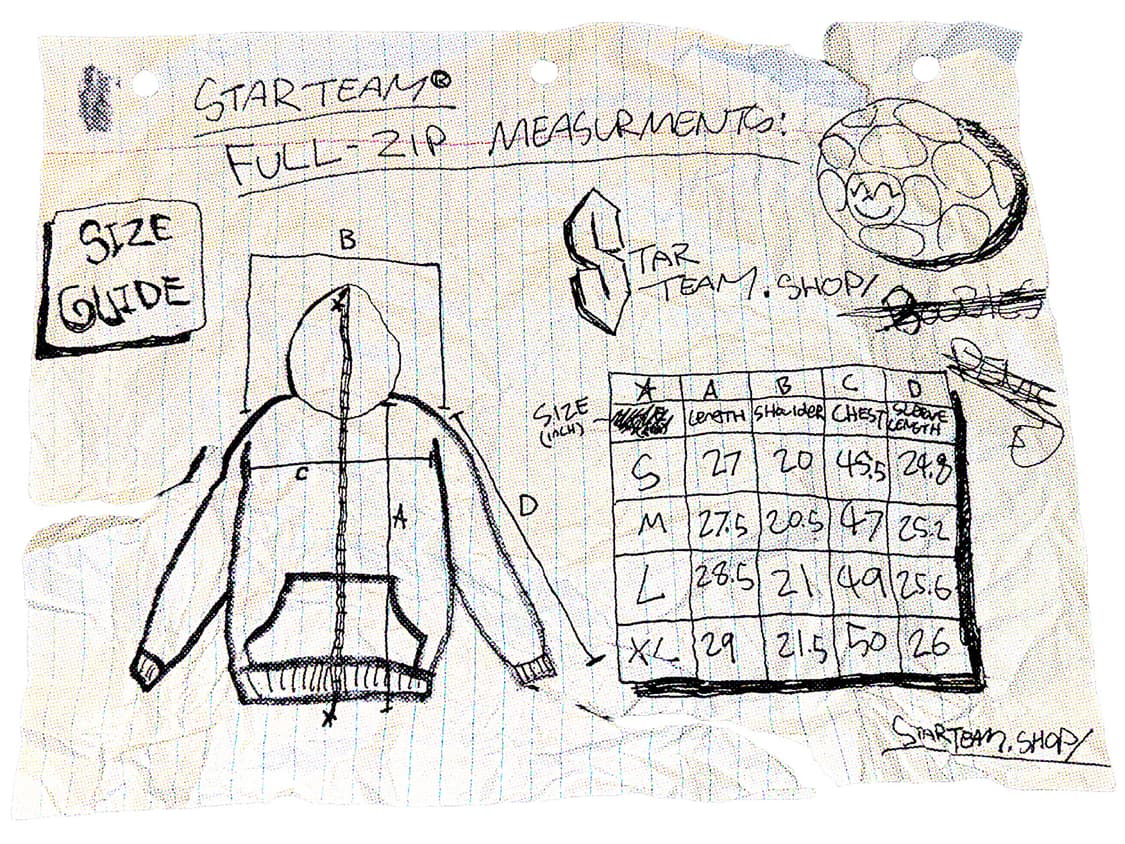 STARTEAM®
FULL-ZIP MEASURMENTS:
SIZE
GUIDE
STAR
TEAM.SHOP/
B
C
A
D
SIZE
(INCH)
A B C D
LENGTH SHOULDER CHEST SLEEVE LENGTH
S 27 20 45.5 24.8
M 27.5 20.5 47 25.2
L 28.5 21 49 25.6
XL 29 21.5 50 26
STARTEAM.SHOP/